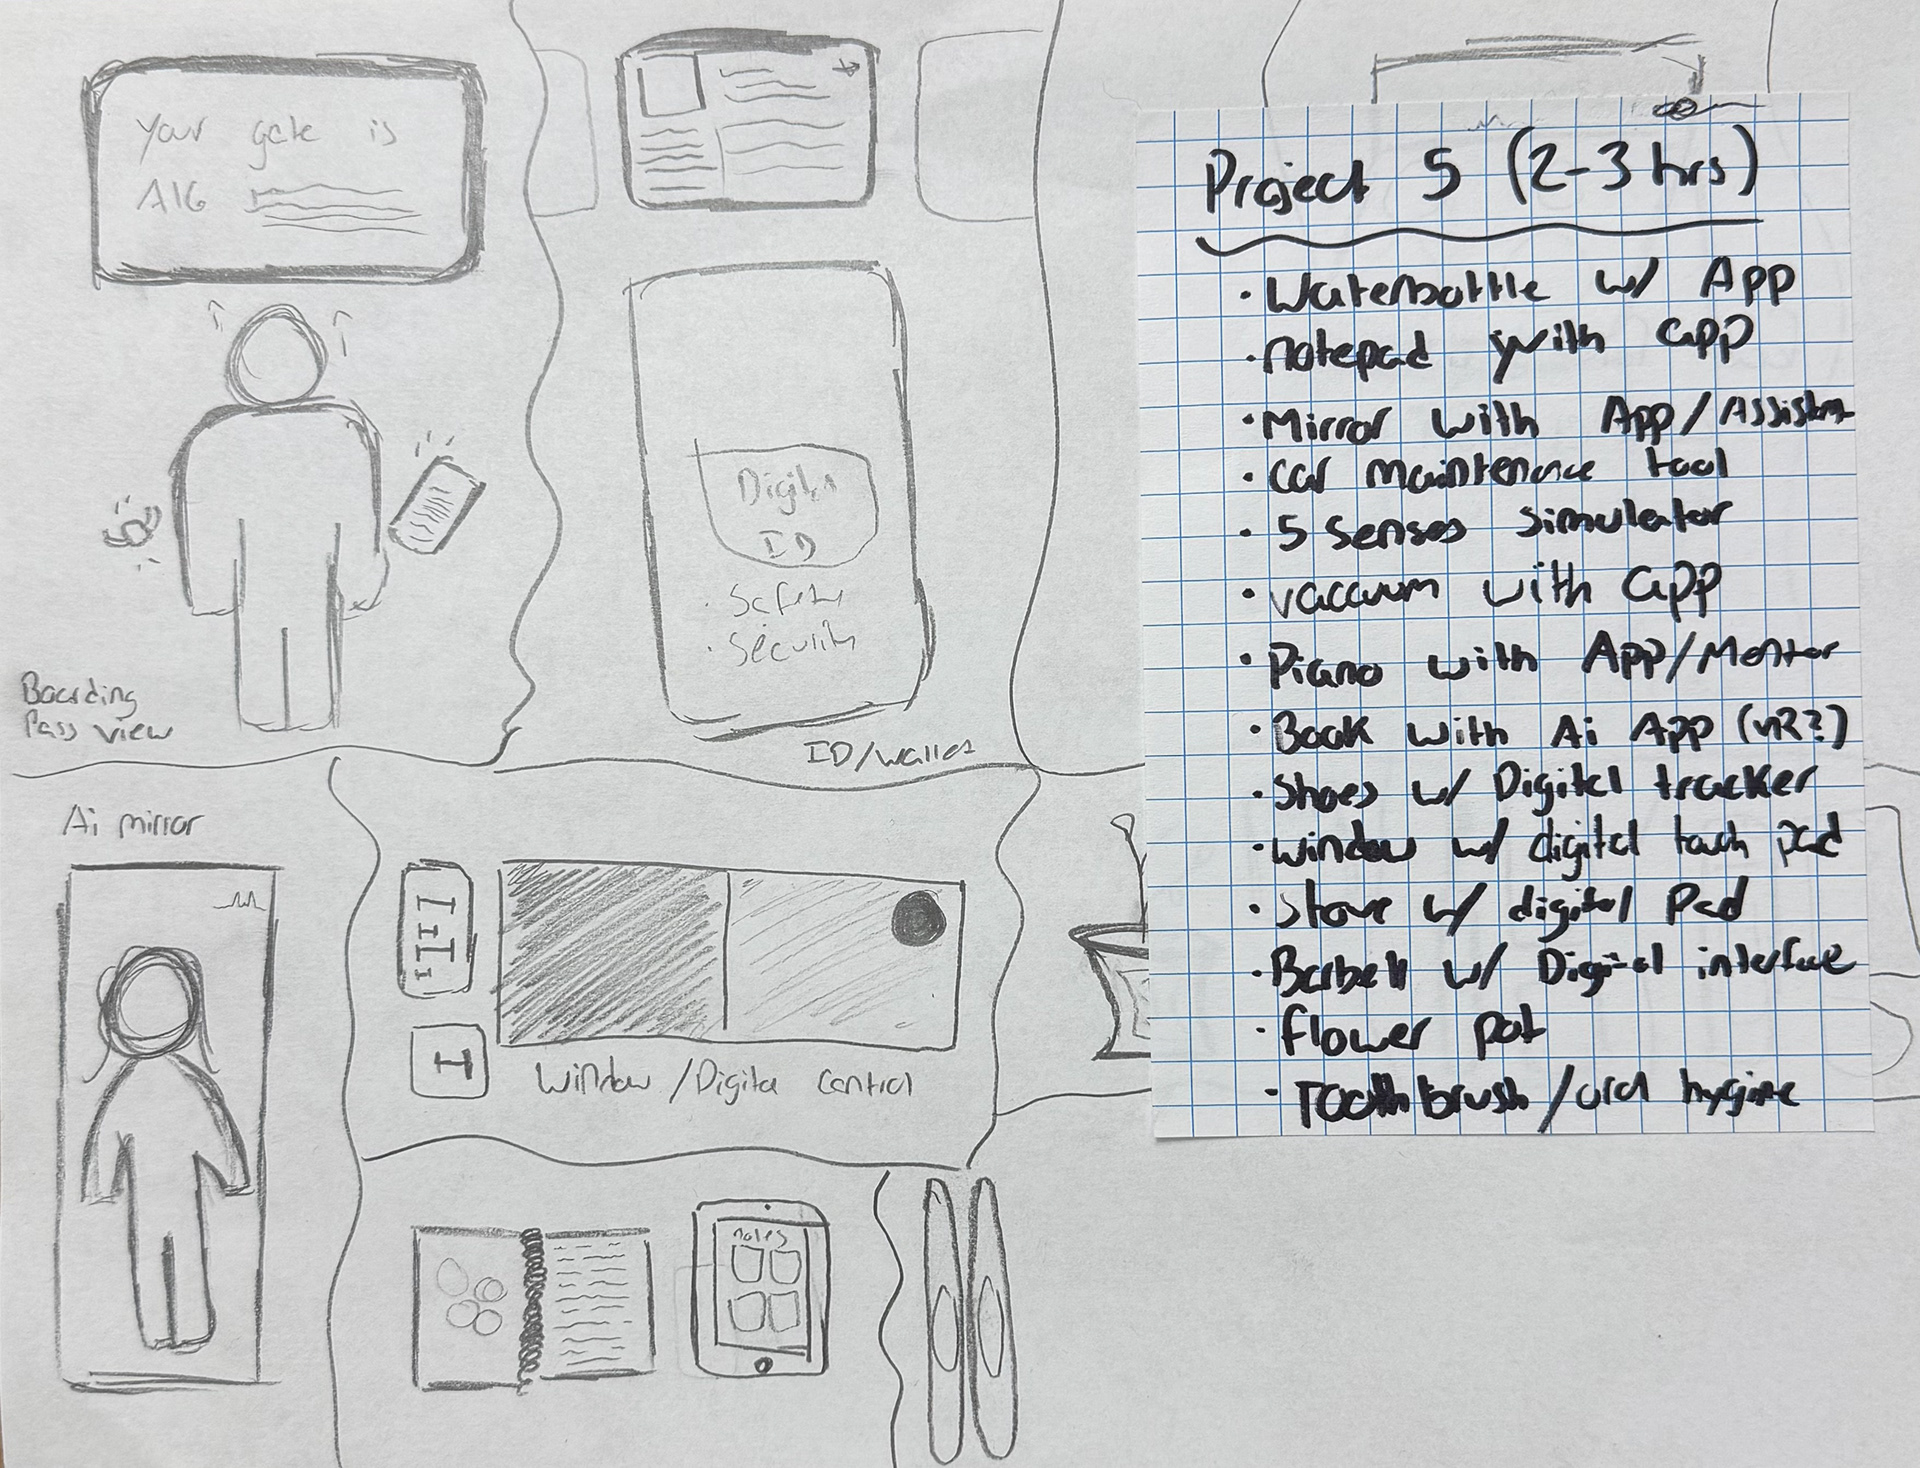 Your gate is
A16
Boarding
Pass view
Digital
ID
· Safety
· Security
ID/wallet
Ai mirror
Window / Digital Control
notes
Project 5 (2-3 hrs)
· Waterbottle w/ App
· notepad with app
· Mirror with App/Assistant
· Car maintenance tool
· 5 senses simulator
· vaccuum with app
· Piano with App/Mentor
· Book with Ai App (VR?)
· Shoes w/ Digital tracker
· window w/ digital touch pad
· Stove w/ digital Pad
· Barbell w/ Digital interface
· flower pot
· Toothbrush/oral hygine